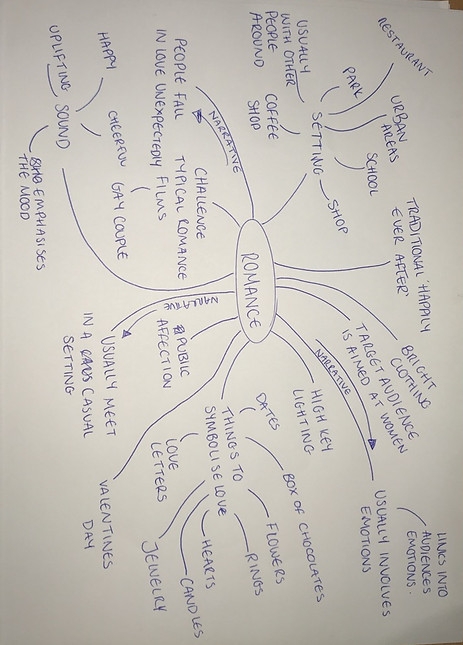 RESTAURANT
PARK
URBAN
AREAS
SCHOOL
SHOP
SETTING
USUALLY
WITH OTHER
PEOPLE
AROUND
COFFEE
SHOP
NARRATIVE
PEOPLE FALL
IN LOVE UNEXPECTEDLY
CHALLENGE
TYPICAL ROMANCE
FILMS
GAY COUPLE
HAPPY
UPLIFTING
CHEERFUL
SOUND
EMPHASISES
THE MOOD
ROMANCE
TRADITIONAL 'HAPPILY
EVER AFTER'
BRIGHT
CLOTHING
TARGET AUDIENCE
IS AIMED AT WOMEN
NARRATIVE
USUALLY INVOLVES
EMOTIONS
LINKS INTO
AUDIENCES
EMOTIONS.
HIGH KEY
LIGHTING
THINGS TO
SYMBOLISE LOVE
DATES
BOX OF CHOCOLATES
FLOWERS
RINGS
HEARTS
CANDLES
JEWELRY
LOVE
LETTERS
VALENTINES
DAY
PUBLIC
AFFECTION
USUALLY MEET
IN A CASUAL
SETTING